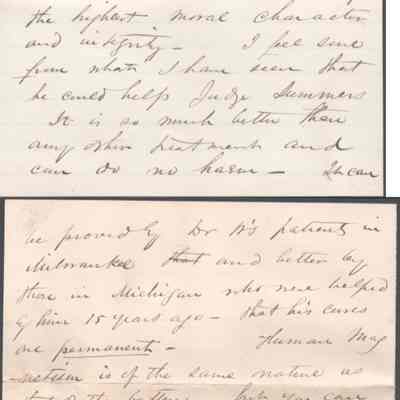 the highest moral character
and integrity – I feel sure
from what I have seen that
he could help Judge Summers
It is so much better than
any other treatment and
can do no harm – It can
be proved by Dr N's patients in
Milwaukee that and better by
those in Michigan who were helped
by him 15 years ago – that his cures
are permanent – Human Mag
-netism is of the same nature as
that of the battery but you can